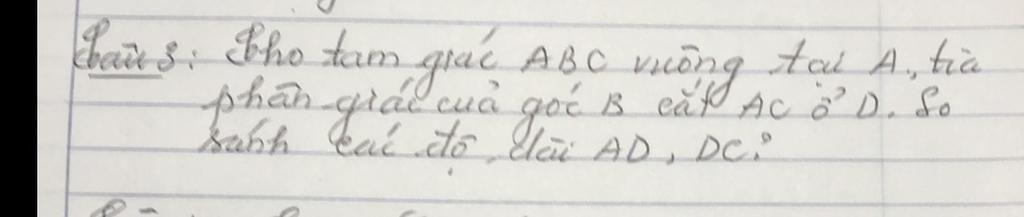 Câu 3: Cho tam giác ABC vuông tại A, tia
phân giác của góc B cắt AC ở D. So
sánh các độ dài AD, DC?